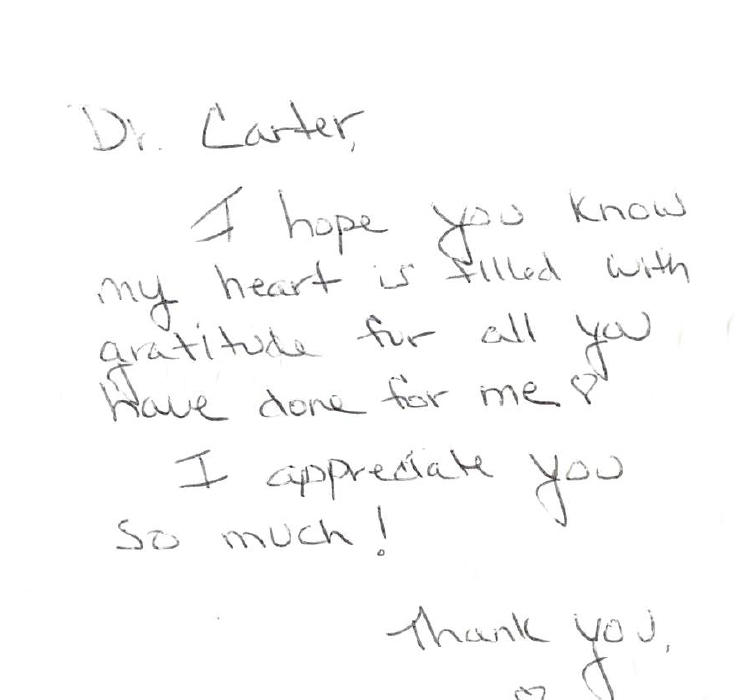 Dr. Carter,
I hope you know
my heart is filled with
gratitude for all you
have done for me. ♡
I appreciate you
so much!
Thank you,
♡